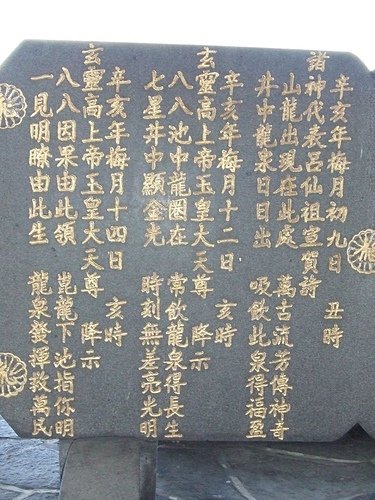 諸神代表呂仙祖宣賀詩
辛亥年梅月初九日 丑時
山龍出現在此處 萬古流芳傳神奇
井中龍泉日日出 吸飲此泉得福盈
玄靈高上帝玉皇大天尊 降示
辛亥年梅月十二日 亥時
八八池中龍圈在 常飲龍泉得長生
七星井中顯金光 時刻無差亮光明
玄靈高上帝玉皇大天尊 降示
辛亥年梅月十四日 亥時
八八因果由此領 崑龍下池指你明
一見明瞭由此生 龍泉發揮救萬民